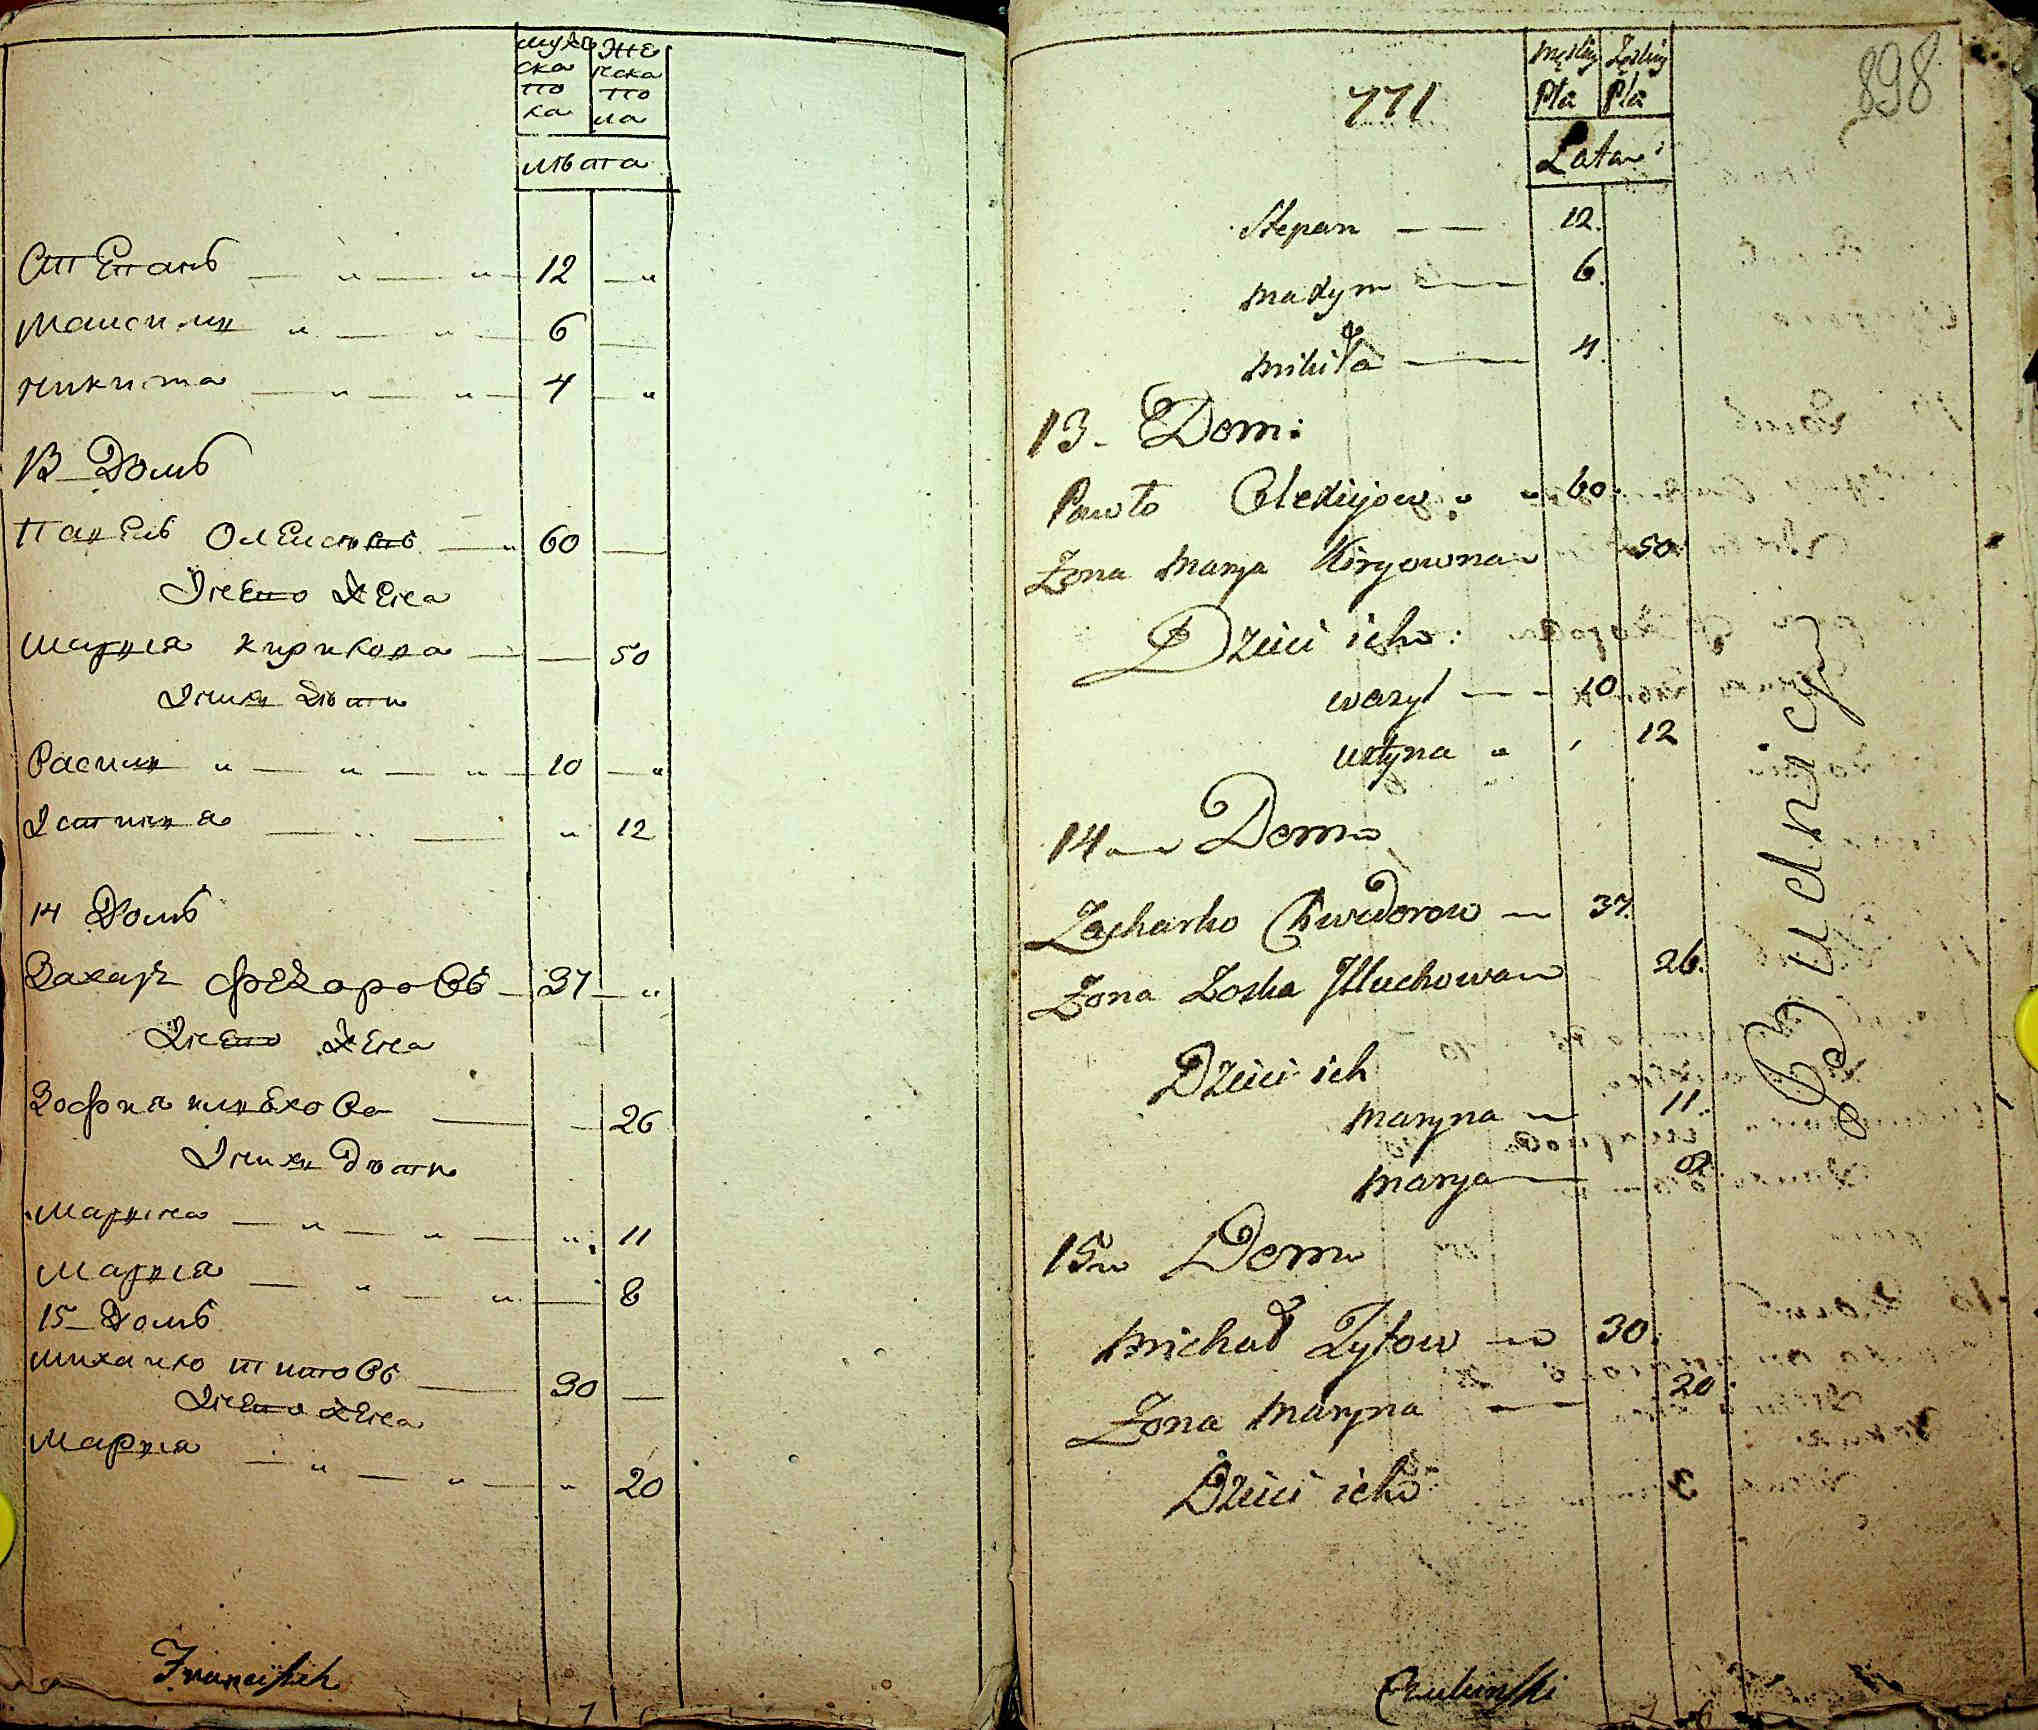 муже
ска
по
ла
же
нска
по
ла
лѣта
Степанъ — " — " — 12 — "
Максим " — " — 6 —
Никита — " — " — 4 — "
13 Домъ
Павелъ Олексивъ — " 60 —
Него жена
Мария Кирикова — — 50
Них дѣти
Василь " — " — " — 10 — "
Істина — " — " 12
14 Домъ
Захаръ Федоровъ — 37 — "
Него жена
Зофия Иляхова — — 26
Них дѣти
Марина — " — " — " 11
Мария — " — " — 8
15 — Домъ
Михайло Титовъ — 30 —
Него жена
Мария — " — " — " 20
Franciszek
898
771
męskiey żęskiey
Pła Pła
Lata
Stepan — — 12.
Maxym — — 6.
Mikiła — 4.
13 - Dom:
Pawło Olexiejow " " 60.
Żona Marya Kirycowna 50
Dzieci ich:
Wazyl — — 10
Ustyna " , 12
14 Dom
Zacharko Chwedorow — 37.
Żona Zoska Iluchowa 26.
Dzieci ich
Maryna — 11.
Marya — 8
15 Dom
Michał Tytow — 30.
Żona Maryna — 20.
Dzieci ich
Budnicy